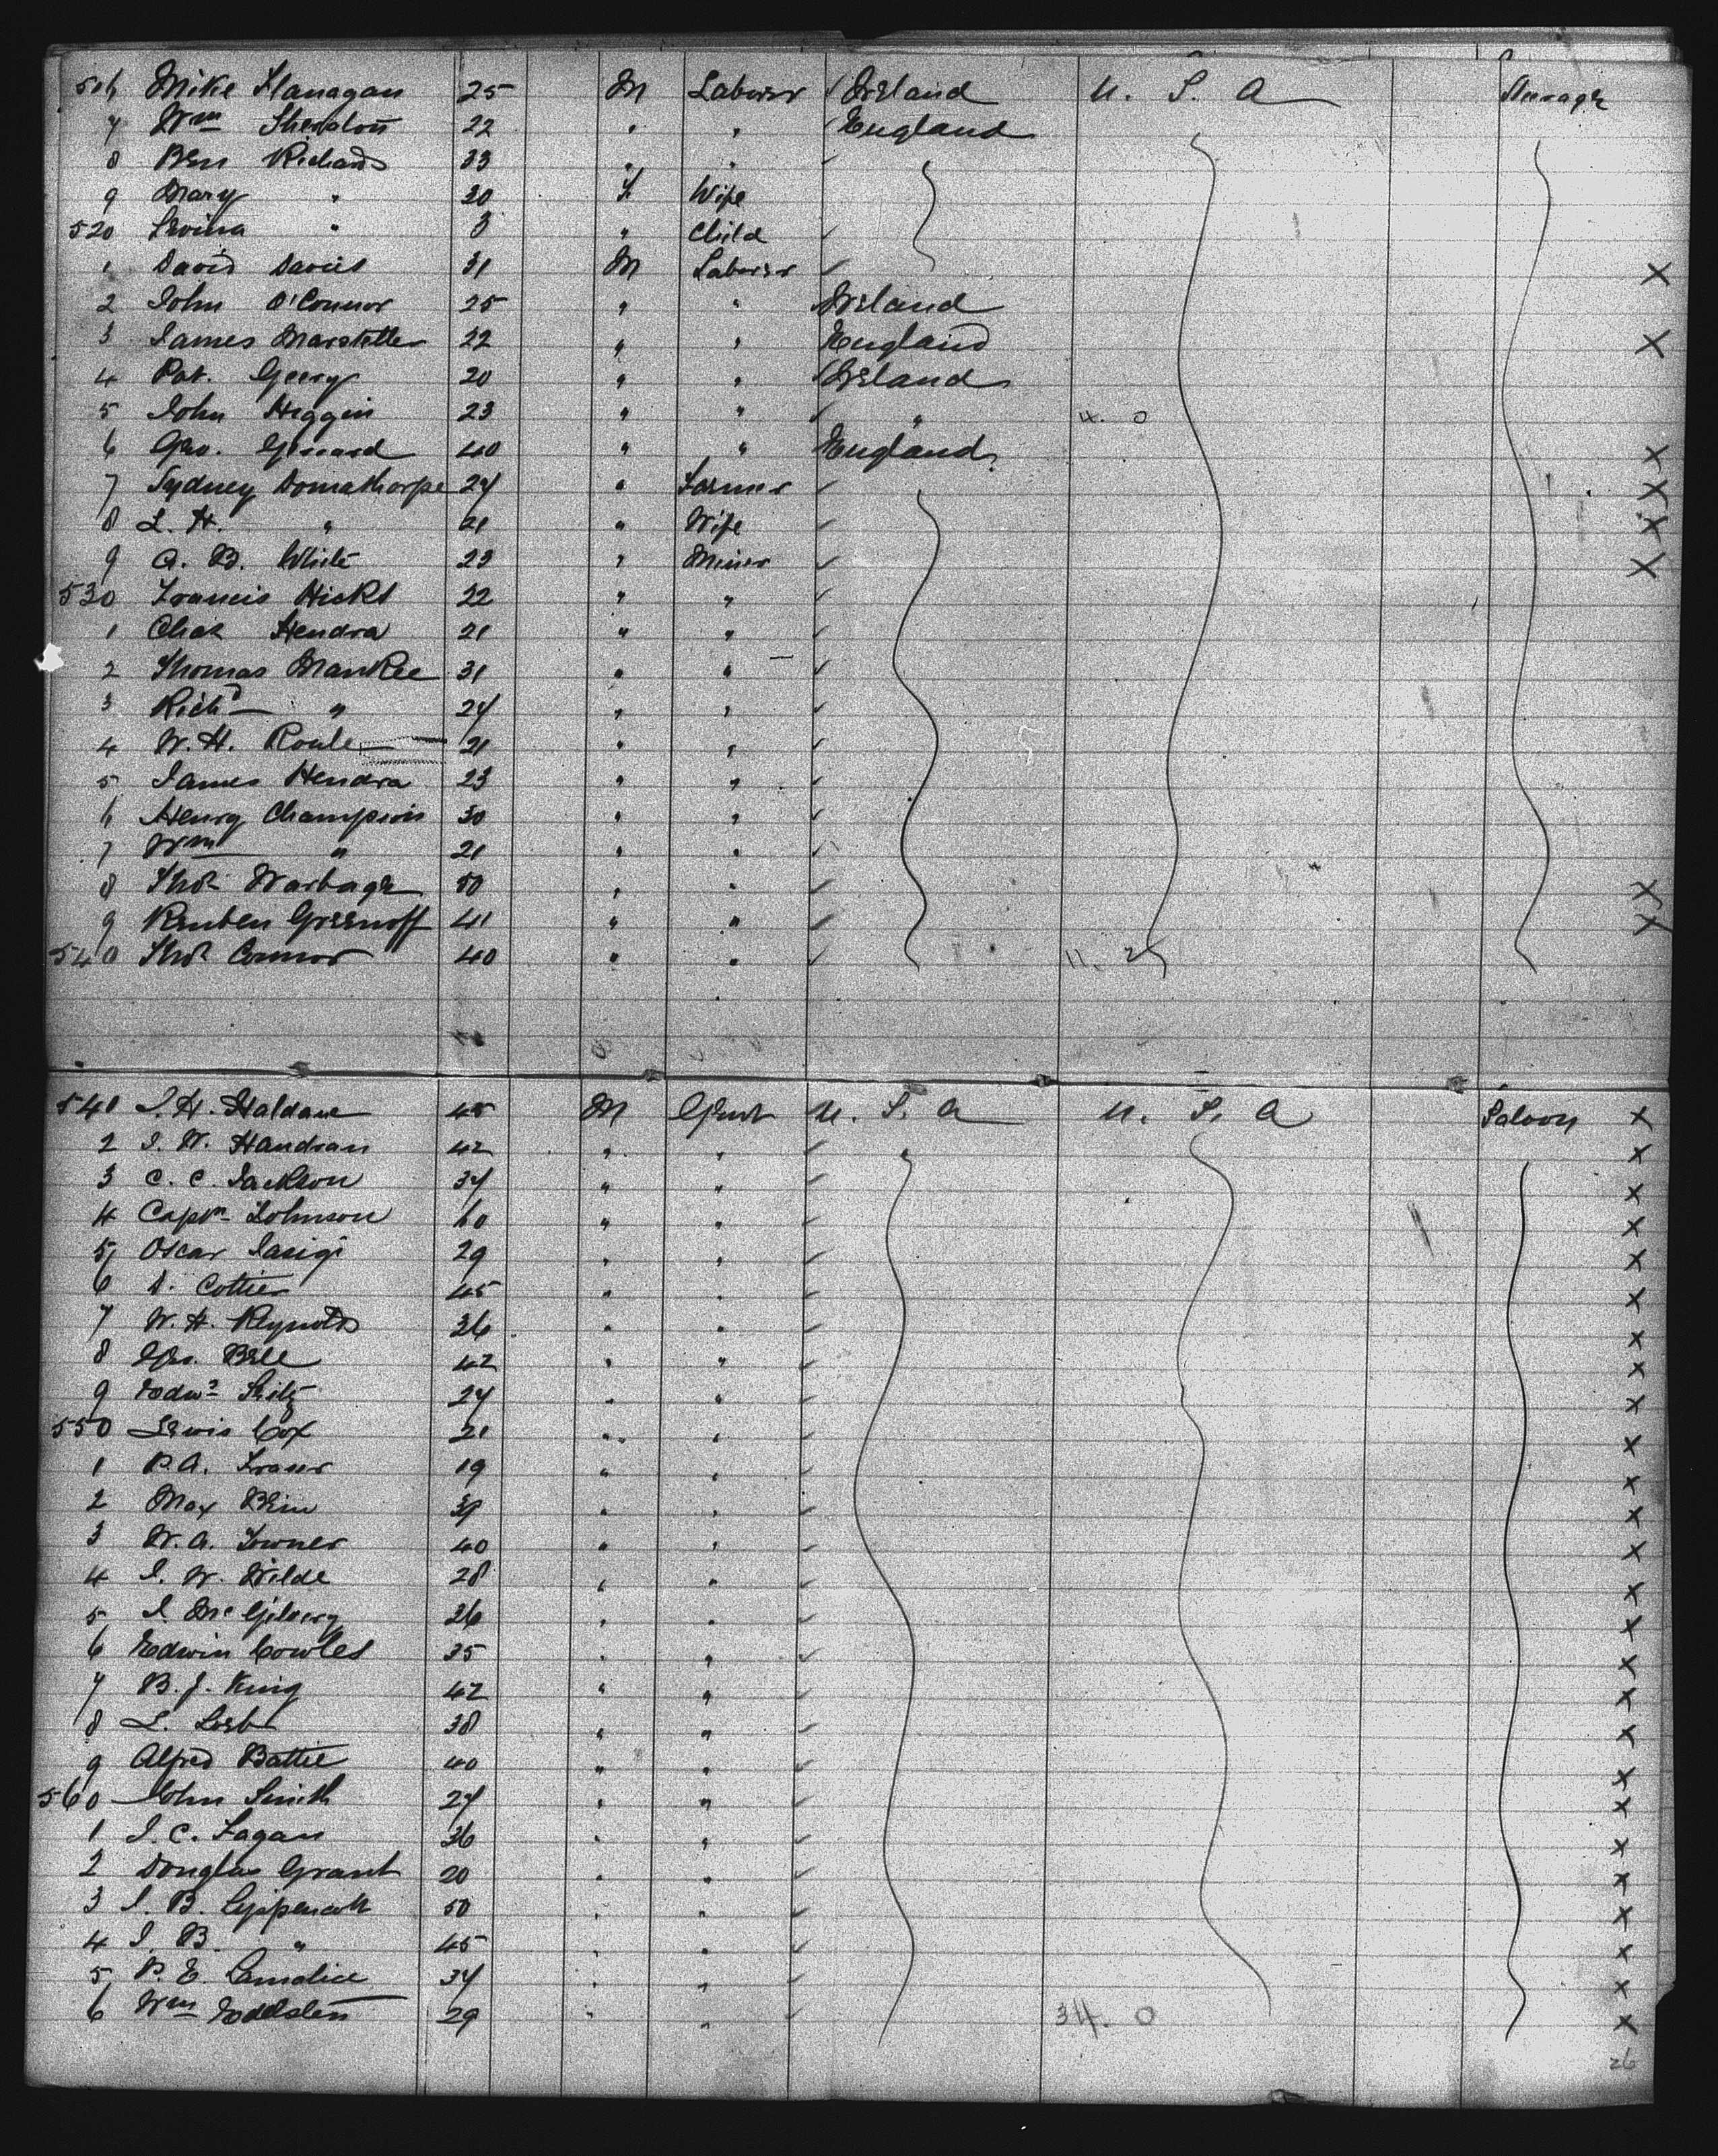 516 Mike Flanagan 25 M Laborer Ireland U. S. A Steerage
7 Wm Sheldon 22 " " England
8 Ben Richards 33 " "
9 Mary " 30 F Wife
520 Levina " 3 " Child
1 David Davies 31 M Laborer X
2 John O'Connor 25 " " Ireland
3 James 22 " " England X
4 Pat. 20 " " Ireland
5 John Higgin 23 " " " 4. 0
6 Geo. 40 " " England X
7 Sydney Domathorpe 24 " Farmer X
8 L. H. " 21 " Wife X
9 A. B. White 23 " Miner X
530 Francis Hicks 22 " "
1 Chas Hendra 21 " "
2 Thomas Mankee 31 " "
3 Richd " 24 " "
4 W. H. Roule 21 " "
5 James Hendra 23 " "
6 Henry Champion 30 " "
7 Wm " 21 " "
8 Thos 50 " " X
9 Reuben Greenoff 41 " " X
540 Thos Connor 40 " " 11. 2
540 J. H. Haldane 45 M Gent U. S. A U. S. A Saloon X
2 J. W. Handran 42 " " X
3 C. C. Jackson 34 " " X
4 Captn Johnson 60 " " X
5 Oscar Iasigi 29 " " X
6 D. Cottier 45 " " X
7 W. H. Reynolds 36 " " X
8 Geo. Bell 42 " " X
9 Edwd Seitz 24 " " X
550 Lewis Cox 21 " " X
1 P. A. 19 " " X
2 Max 39 " " X
3 W. A. Towner 40 " " X
4 J. W. Wilde 28 " " X
5 J. McGilvery 26 " " X
6 Edwin Cowles 35 " " X
7 B. J. King 42 " " X
8 L. Loeb 38 " " X
9 Alfred Battie 40 " " X
560 John Smith 24 " " X
1 J. C. Fagan 36 " " X
2 Douglas Grant 20 " " X
3 J. B. Lippencott 50 " " X
4 J. B. " 45 " " X
5 P. E. 34 " " X
6 Wm 29 " " 34. 0 X
26